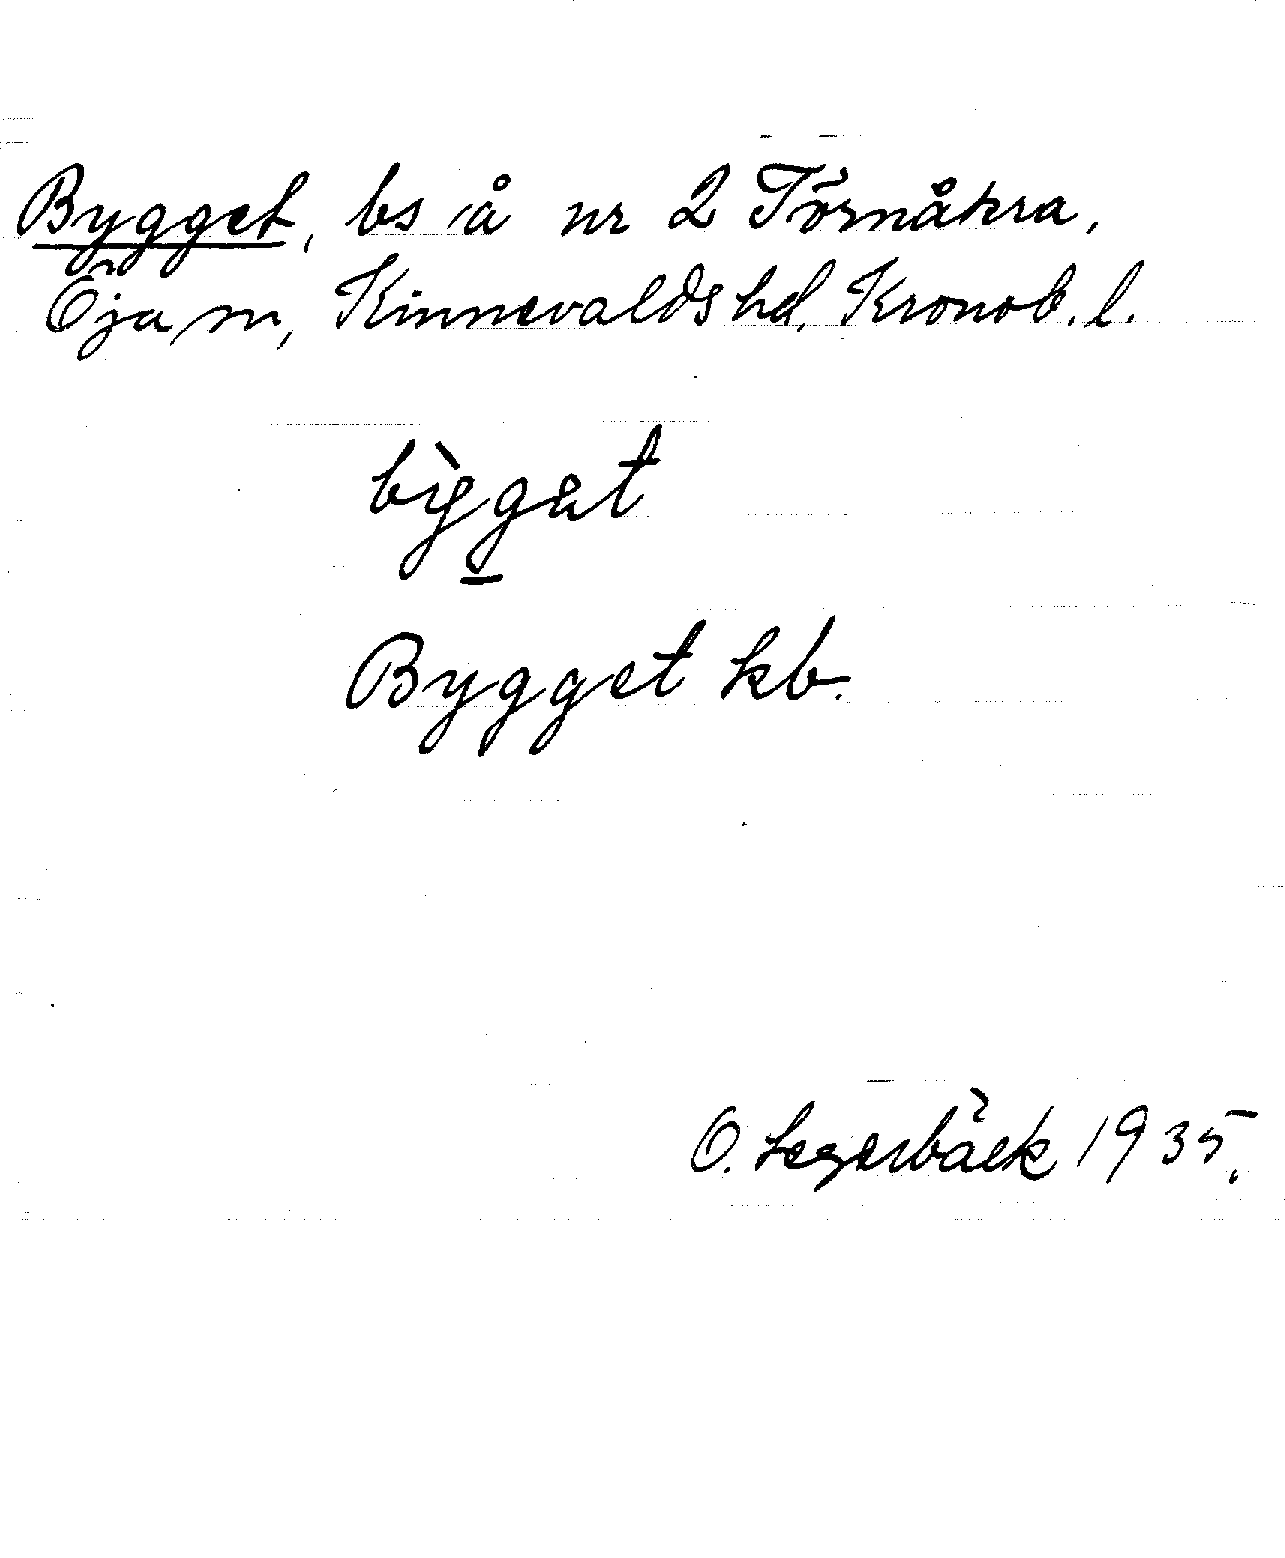 Bygget, bs å nr 2 Törnåkra,
Öja sn, Kinnevalds hd, Kronob. l.
bỳggat
Bygget kb.
O. Segerbäck 1935.